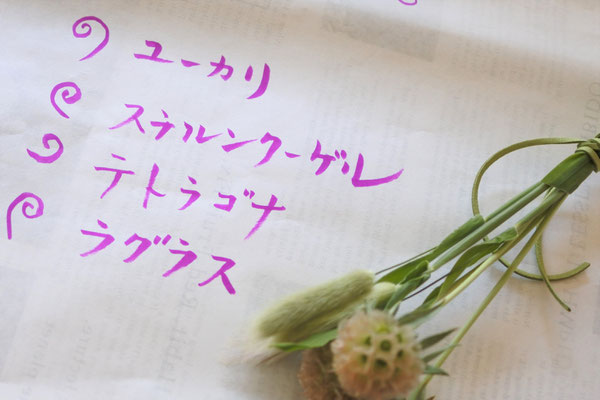 ユーカリ
ステルンクーゲル
テトラゴナ
ラグラス